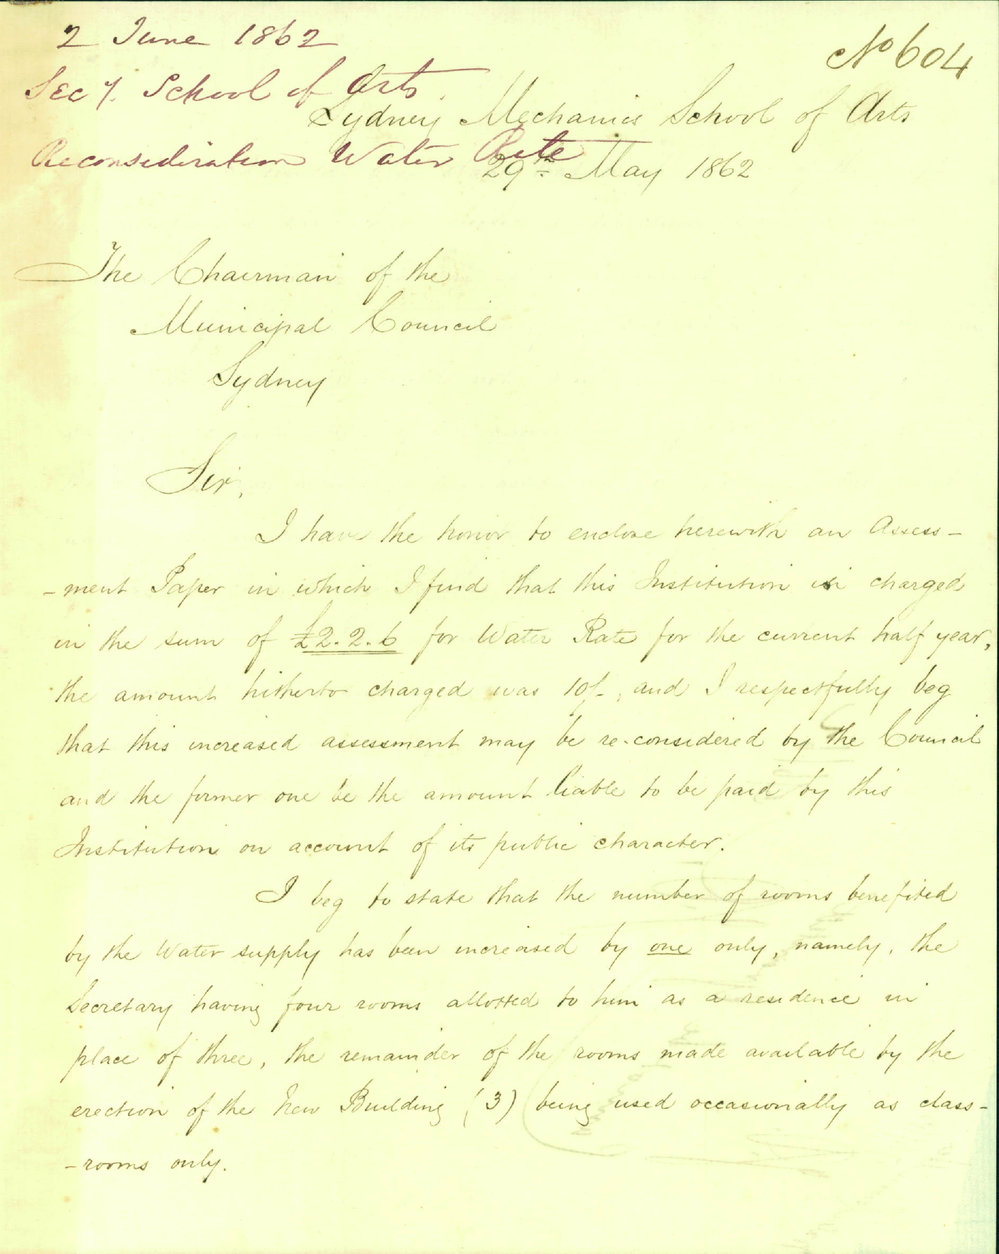 2 June 1862
No 604
Secy. School of Arts.
Sydney Mechanics School of Arts
Reconsideration Water Rate
29th May 1862
The Chairman of the
Municipal Council
Sydney
Sir,
I have the honor to enclose herewith an Assess-
-ment Paper in which I find that this Institution is charged
in the sum of £2.2.6 for Water Rate for the current half year,
the amount hitherto charged was 10/-, and I respectfully beg
that this increased assessment may be re-considered by the Council
and the former one be the amount liable to be paid by this
Institution on account of its public character.
I beg to state that the number of rooms benefited
by the Water supply has been increased by one only, namely, the
Secretary having four rooms allotted to him as a residence in
place of three, the remainder of the rooms made available by the
erection of the New Building (3) being used occasionally as class-
-rooms only.